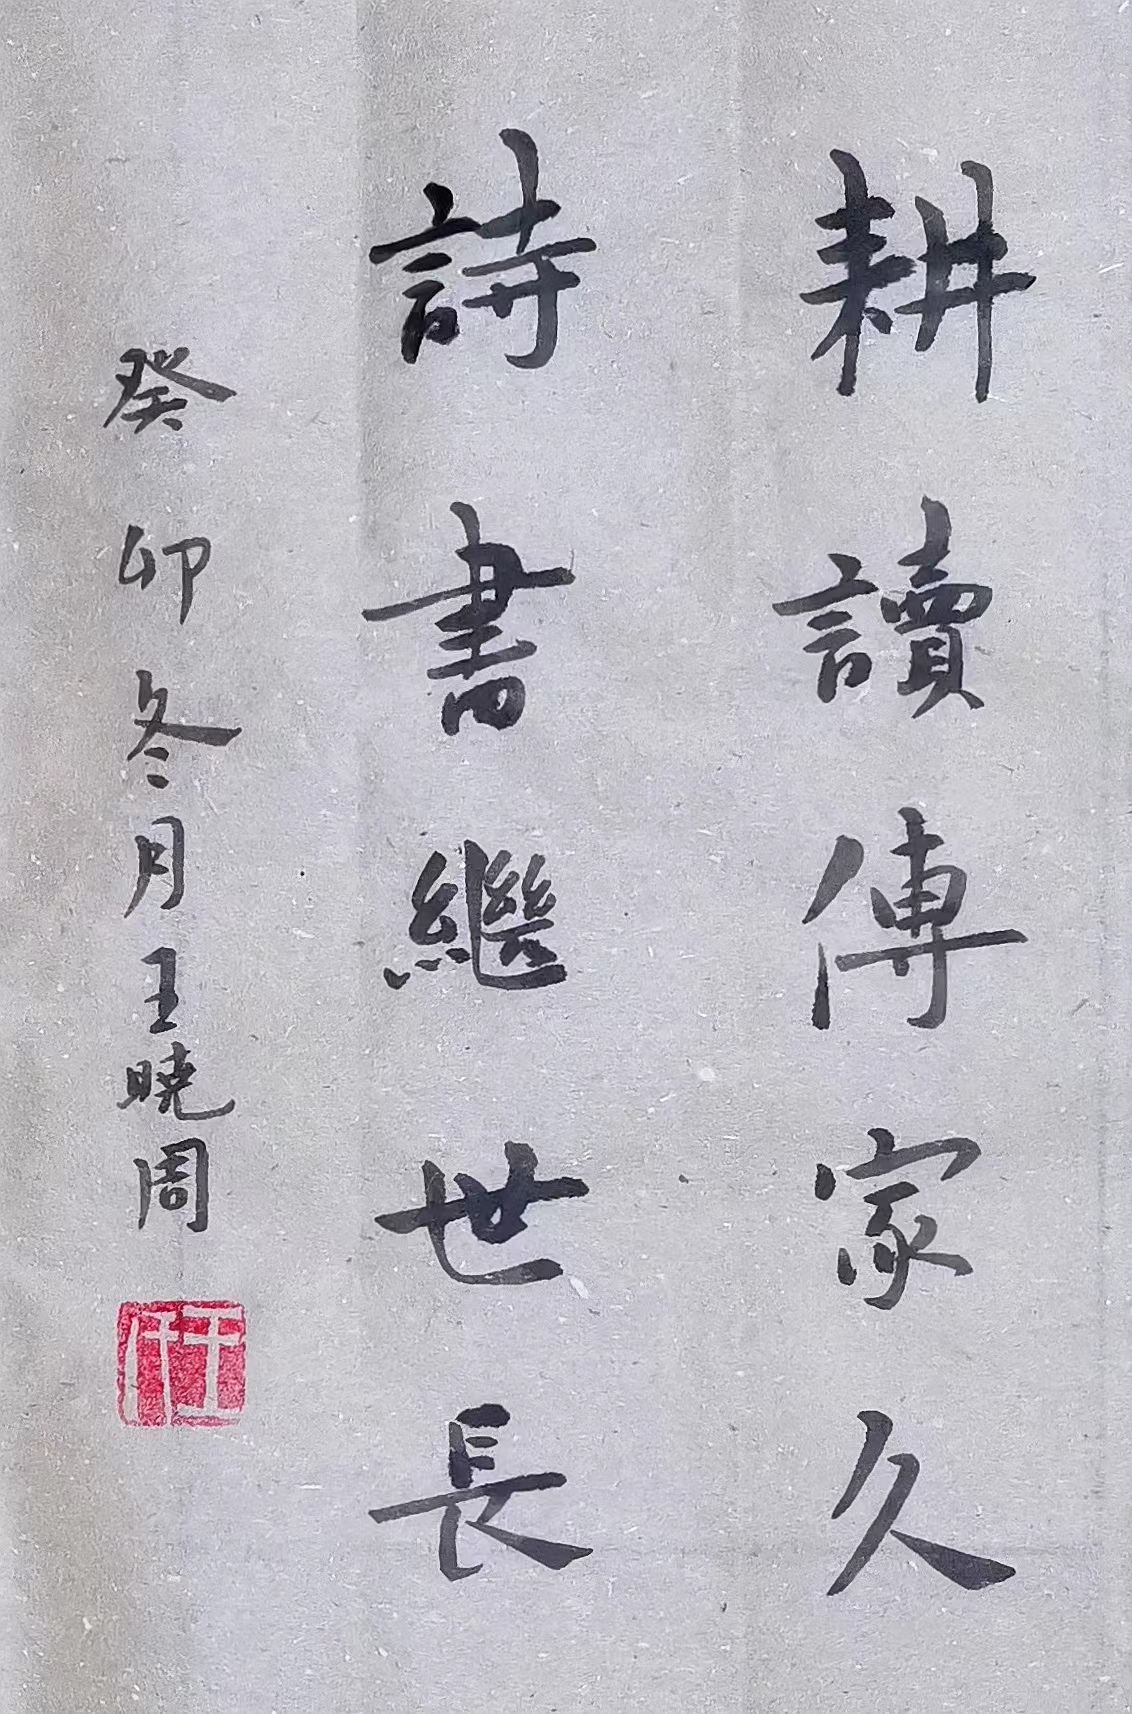 耕讀傳家久
詩書繼世長
癸卯冬月王曉周